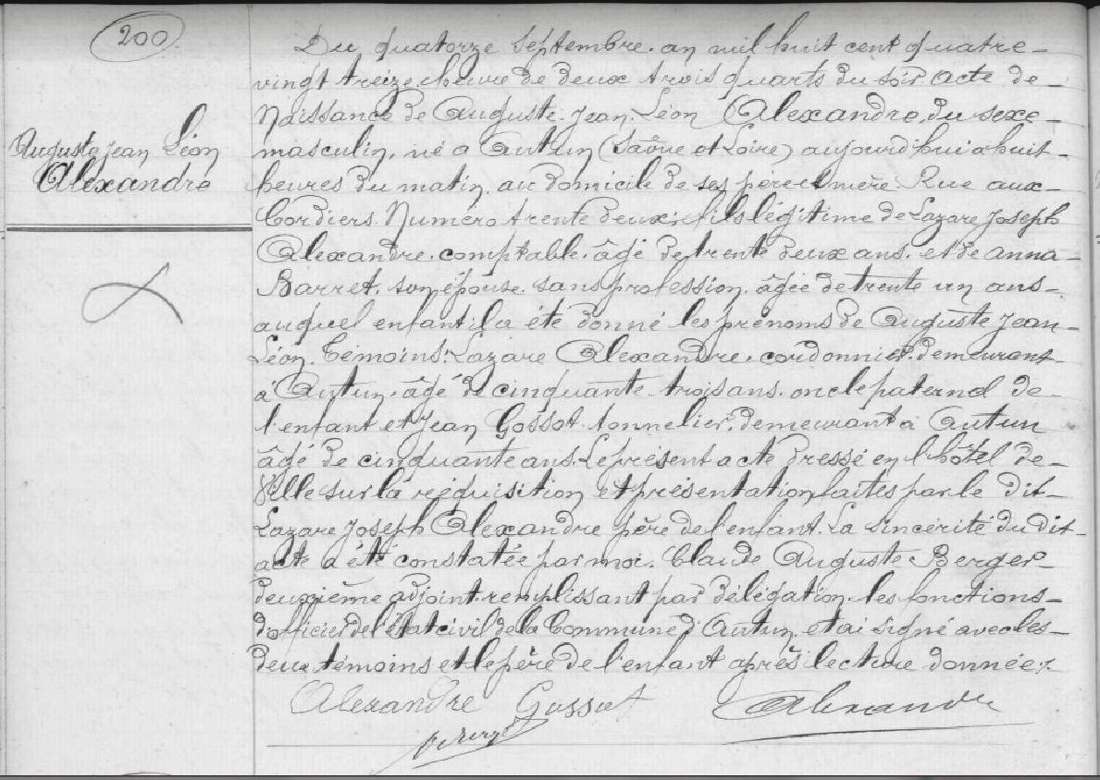 200
Auguste Jean Léon
Alexandre
Du quatorze Septembre an mil huit cent quatre-
vingt treize, heure de deux trois quarts du soir Acte de
Naissance de Auguste Jean Léon Alexandre, du sexe
masculin, né a Autun (Saône et Loire) aujourd'hui a huit
heures du matin, au domicile de ses père et mère Rue aux
Cordiers Numéro trente deux; fils légitime de Lazare Joseph
Alexandre, comptable, âgé de trente deux ans, et de Anna
Barret, son épouse sans profession, âgée de trente un ans
auquel enfant il a été donné les prénoms de Auguste Jean
Léon. Témoins: Lazare Alexandre, cordonnier, demeurant
à Autun, âgé de cinquante trois ans, oncle paternel de
l'enfant et Jean Gossot tonnelier, demeurant à Autun
âgé de cinquante ans. Le présent acte dressé en l'hôtel de
Ville sur la réquisition et présentation faites par le dit
Lazare Joseph Alexandre père de l'enfant. La sincérité du dit
acte a été constatée par moi, Claude Auguste Berger
deuxième adjoint remplissant par délégation les fonctions
d'officier de l'état civil de la Commune d'Autun, et ai signé avec les
deux témoins et le père de l'enfant après lecture donnée.
Alexandre Gossot Alexandre
Berger